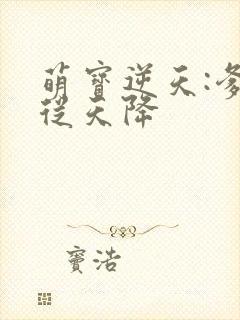 萌寶逆天:
從天降
竇浩